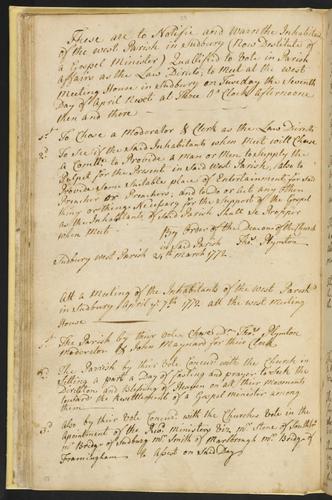 These are to Notifie and Warn the Inhabitants
of the West Parish in Sudbury (Now Destitute of
a Gospel Minister) Quallified to Vote in Parish
Affairs as the Law Directs, to meet at the West
Meeting House in Sudbury on Tuesday the Seventh
Day of April Next at Three O'Clock afternoone
then and there
1st To Chose a Moderator & Clerk as the Law Directs
2d To See if the Said Inhabitants when meet will Chose
a Comtte to Provide a Man or Men to Supply the
Pulpet for the Present in Said West Parish, also to
Provide Some Suitable place of Entertainment for Said
Preacher or Preachers, and to Do or act any other
thing or things Necessary for the Support of the Gospel
as the Inhabitants of Said Parish Shall se Propper
when meet
By Order of the Deacons of the Church
in Said Parish Thos. Plymton
Sudbury West Parish 24th March 1772
Att a Meeting of the Inhabitants of the West Parish
in Sudbury April ye 7th 1772 att the West Meeting
House
1st The Parish by their Vote Chose Dn. Thos. Plymton
Moderator & John Maynard for their Clerk
2d The Parish by their Vote Concurd with the Church in
Setting a part a Day of fasting and prayer to Seek the
Direction and Blessing of Heaven on all their movements
toward the Resettlement of a Gospel menester among
them
3d Also by their Vote Concurd with the Churches Vote in the
Apointment of the Revd. ministers viz mr. Stone of Southbo
mr. Bridge of Sudbury mr. Smith of Marlborough mr. Bridge of
Framingham to assist on Said Day